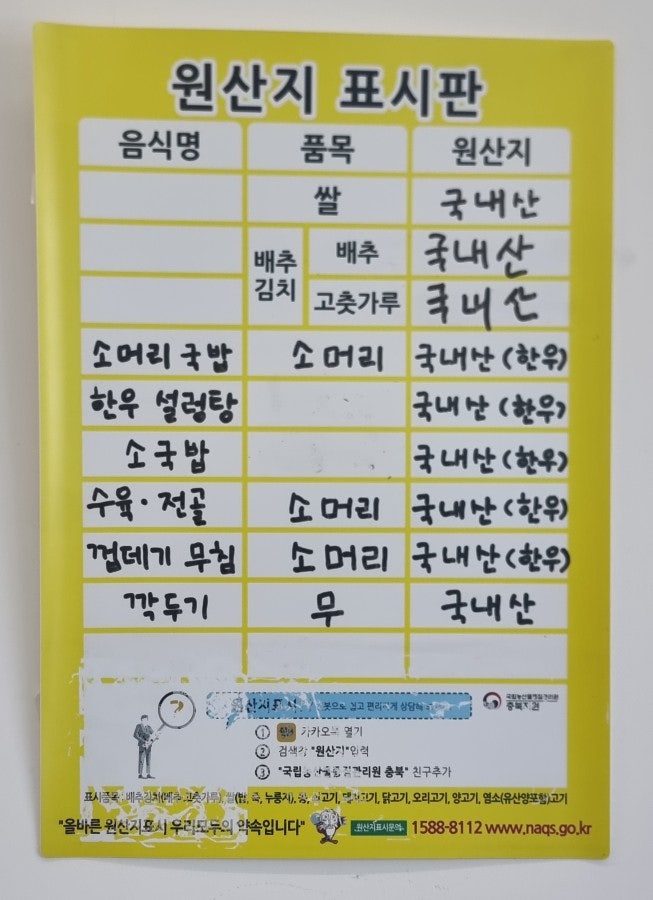 원산지 표시판
음식명 품목 원산지
쌀 국내산
배추김치 배추 국내산
고춧가루 국내산
소머리국밥 소머리 국내산(한우)
한우 설렁탕 국내산(한우)
소국밥 국내산(한우)
수육·전골 소머리 국내산(한우)
껍데기 무침 소머리 국내산(한우)
깍두기 무 국내산
?
원산지표시 봇으로 쉽고 편리하게
국립농산물품질관리원
충북지원
① 카카오톡 열기
② 검색창 "원산지"입력
③ "국립농산물품질관리원 충북" 친구추가
표시품목: 배추김치(배추,고춧가루), 쌀(밥, 죽, 누룽지), 콩, 쇠고기, 돼지고기, 닭고기, 오리고기, 양고기, 염소(유산양포함)고기
"올바른 원산지표시 우리모두의 약속입니다" 원산지표시문의 1588-8112 www.naqs.go.kr